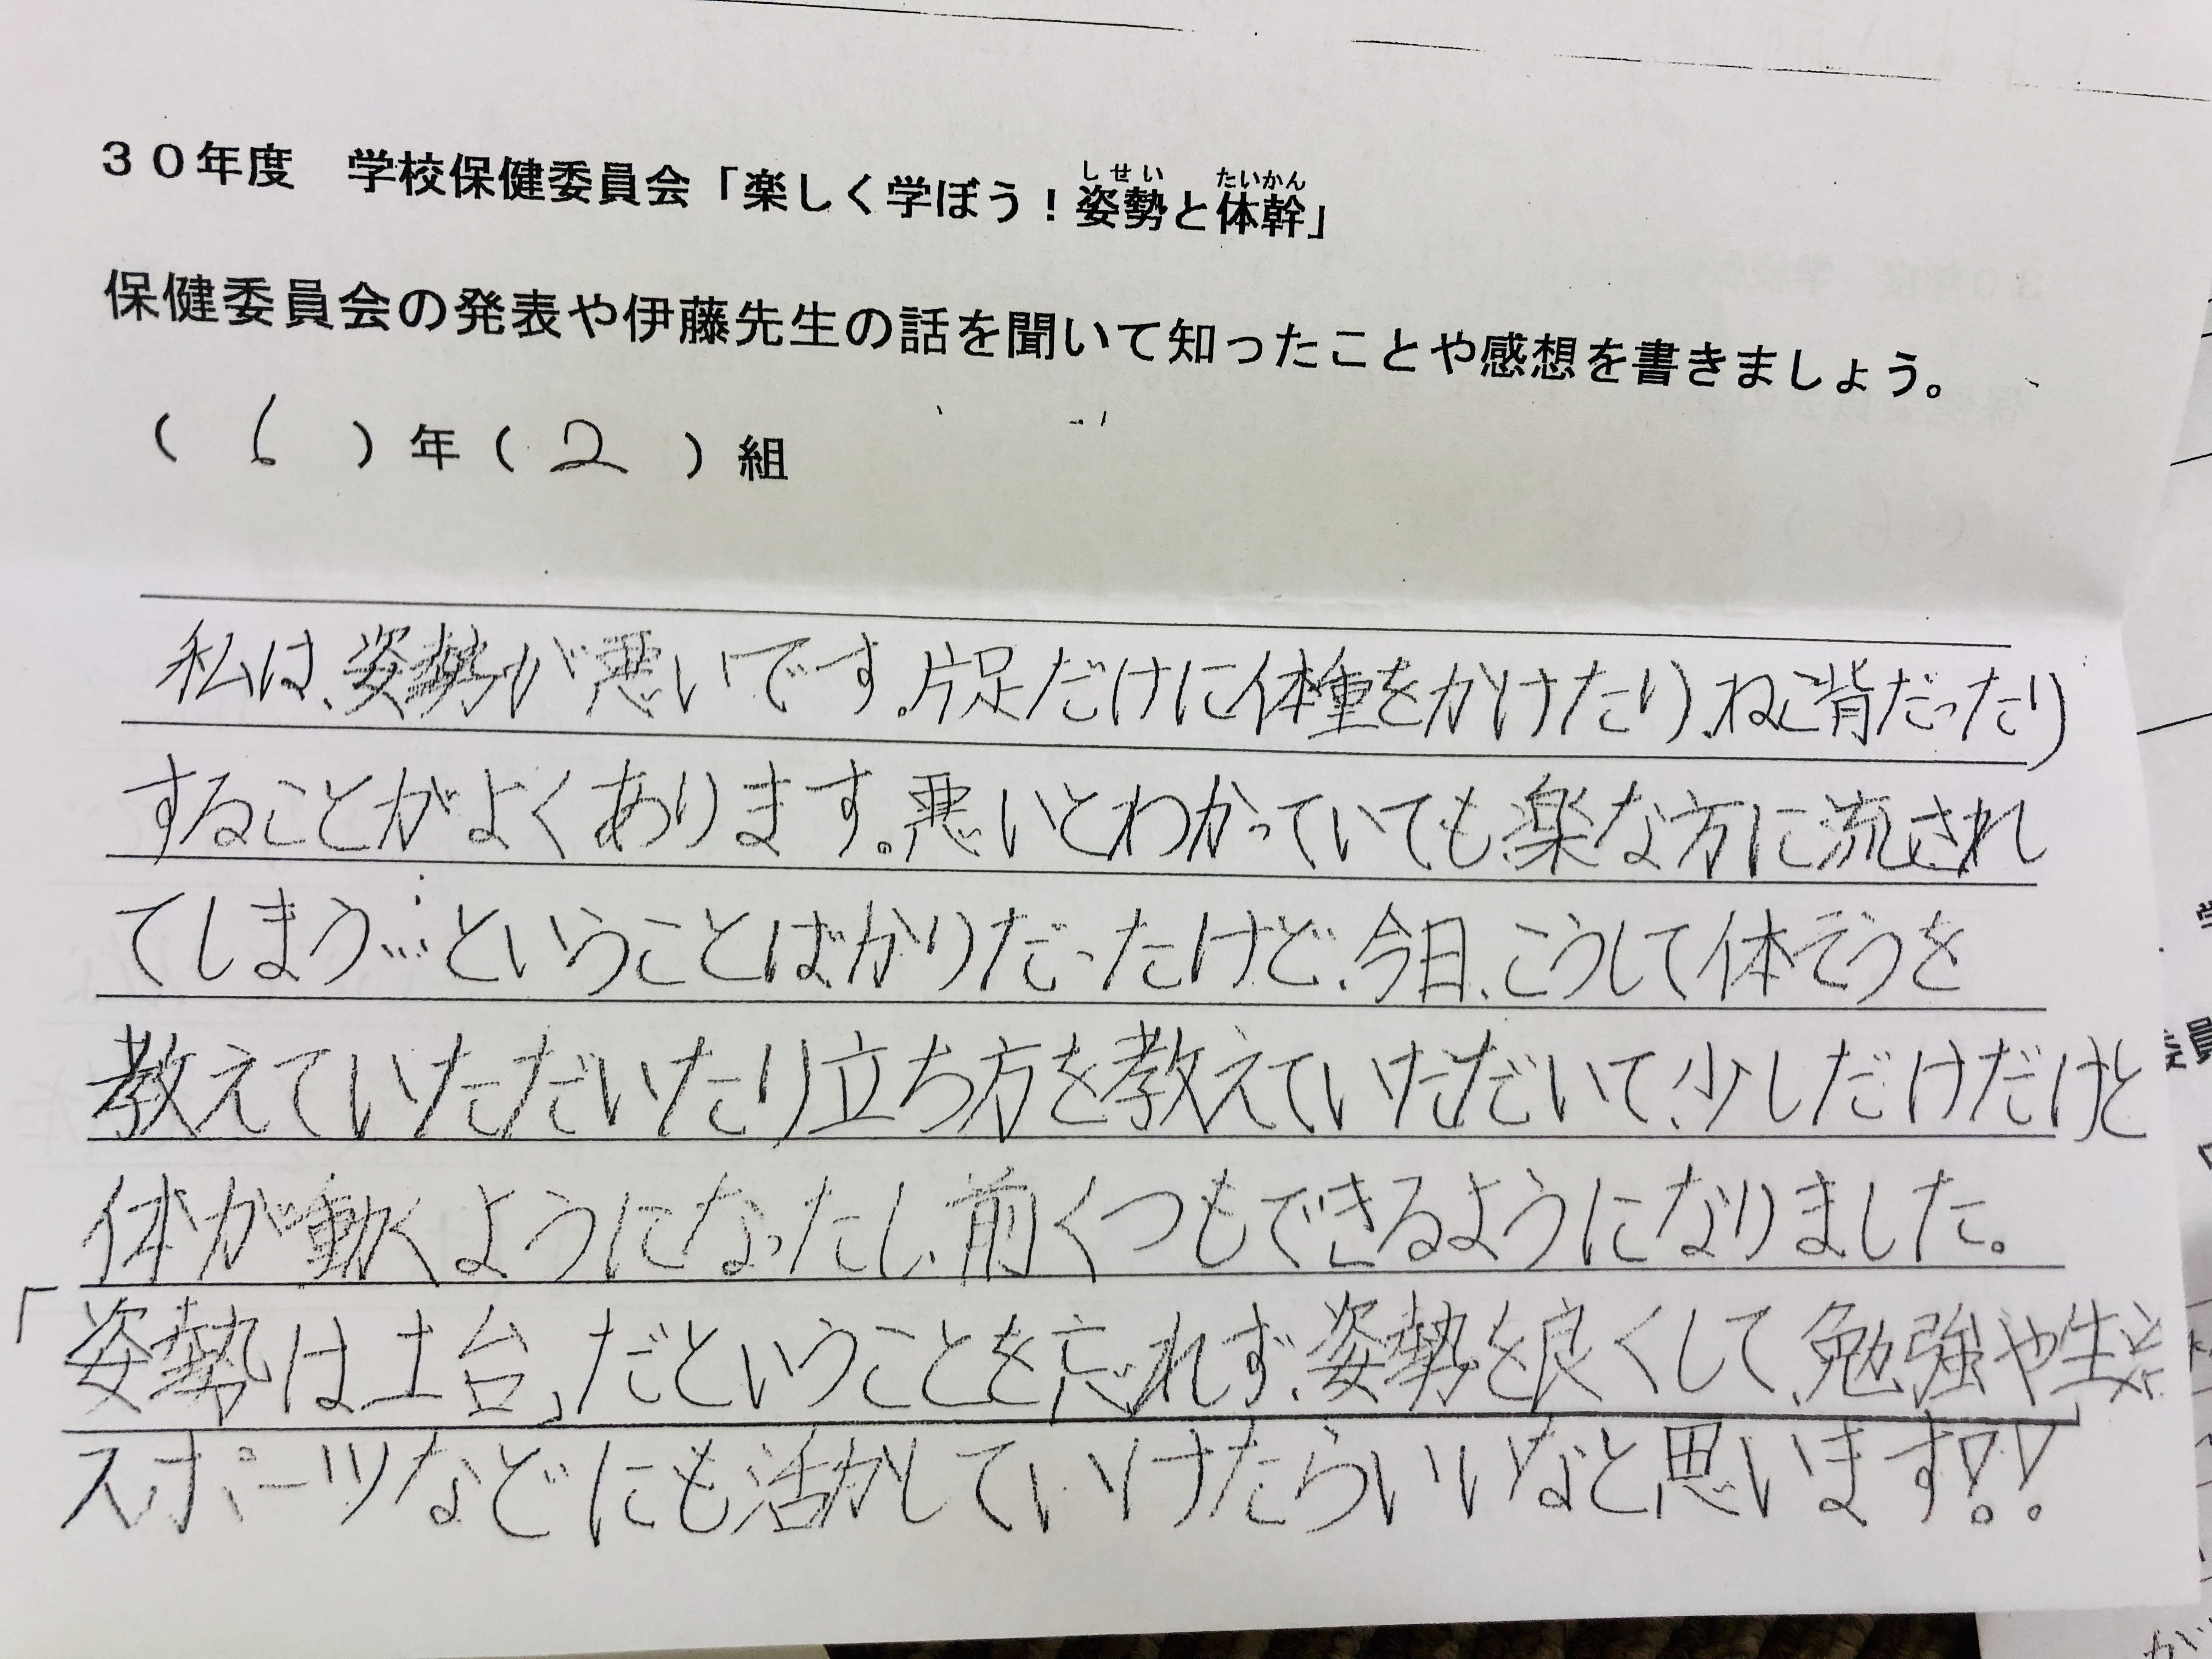 30年度　学校保健委員会「楽しく学ぼう！姿勢と体幹」
しせい　たいかん
保健委員会の発表や伊藤先生の話を聞いて知ったことや感想を書きましょう。
（ 6 ）年（ 2 ）組
私は、姿勢が悪いです。片足だけに体重をかけたり、ねこ背だったり
することがよくあります。悪いとわかっていても楽な方に流され
てしまう…ということばかりだったけど、今日、こうして体そうを
教えていただいたり立ち方を教えていただいて、少しだけだけど
体が動くようになったし、前くつもできるようになりました。
「姿勢は土台」だということを忘れず、姿勢を良くして、勉強や生活
スポーツなどにも活かしていけたらいいなと思います!!